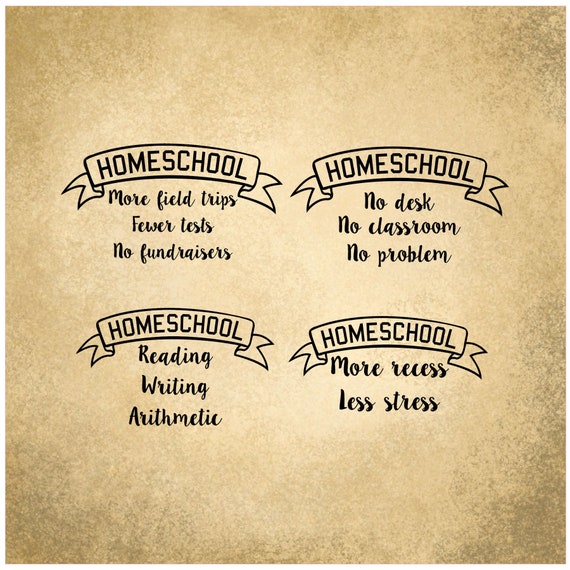 HOMESCHOOL
More field trips
Fewer tests
No fundraisers
HOMESCHOOL
No desk
No classroom
No problem
HOMESCHOOL
Reading
Writing
Arithmetic
HOMESCHOOL
More recess
Less stress